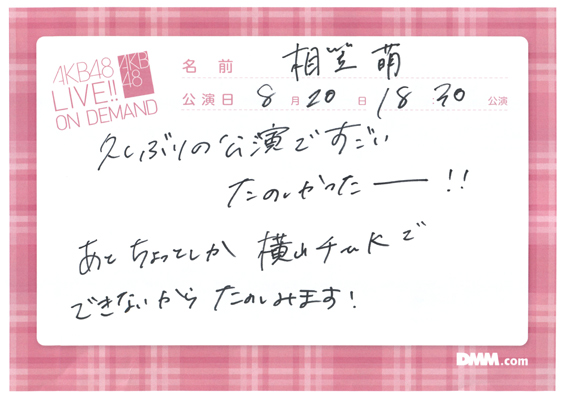 AKB48
LIVE!!
ON DEMAND
AKB
48
名前 相笠 萌
公演日 8月20日 18:30 公演
久しぶりの公演ですごい
たのしかったー!!
あとちょっとしか横山チームKで
できないからたのしみます!
DMM.com